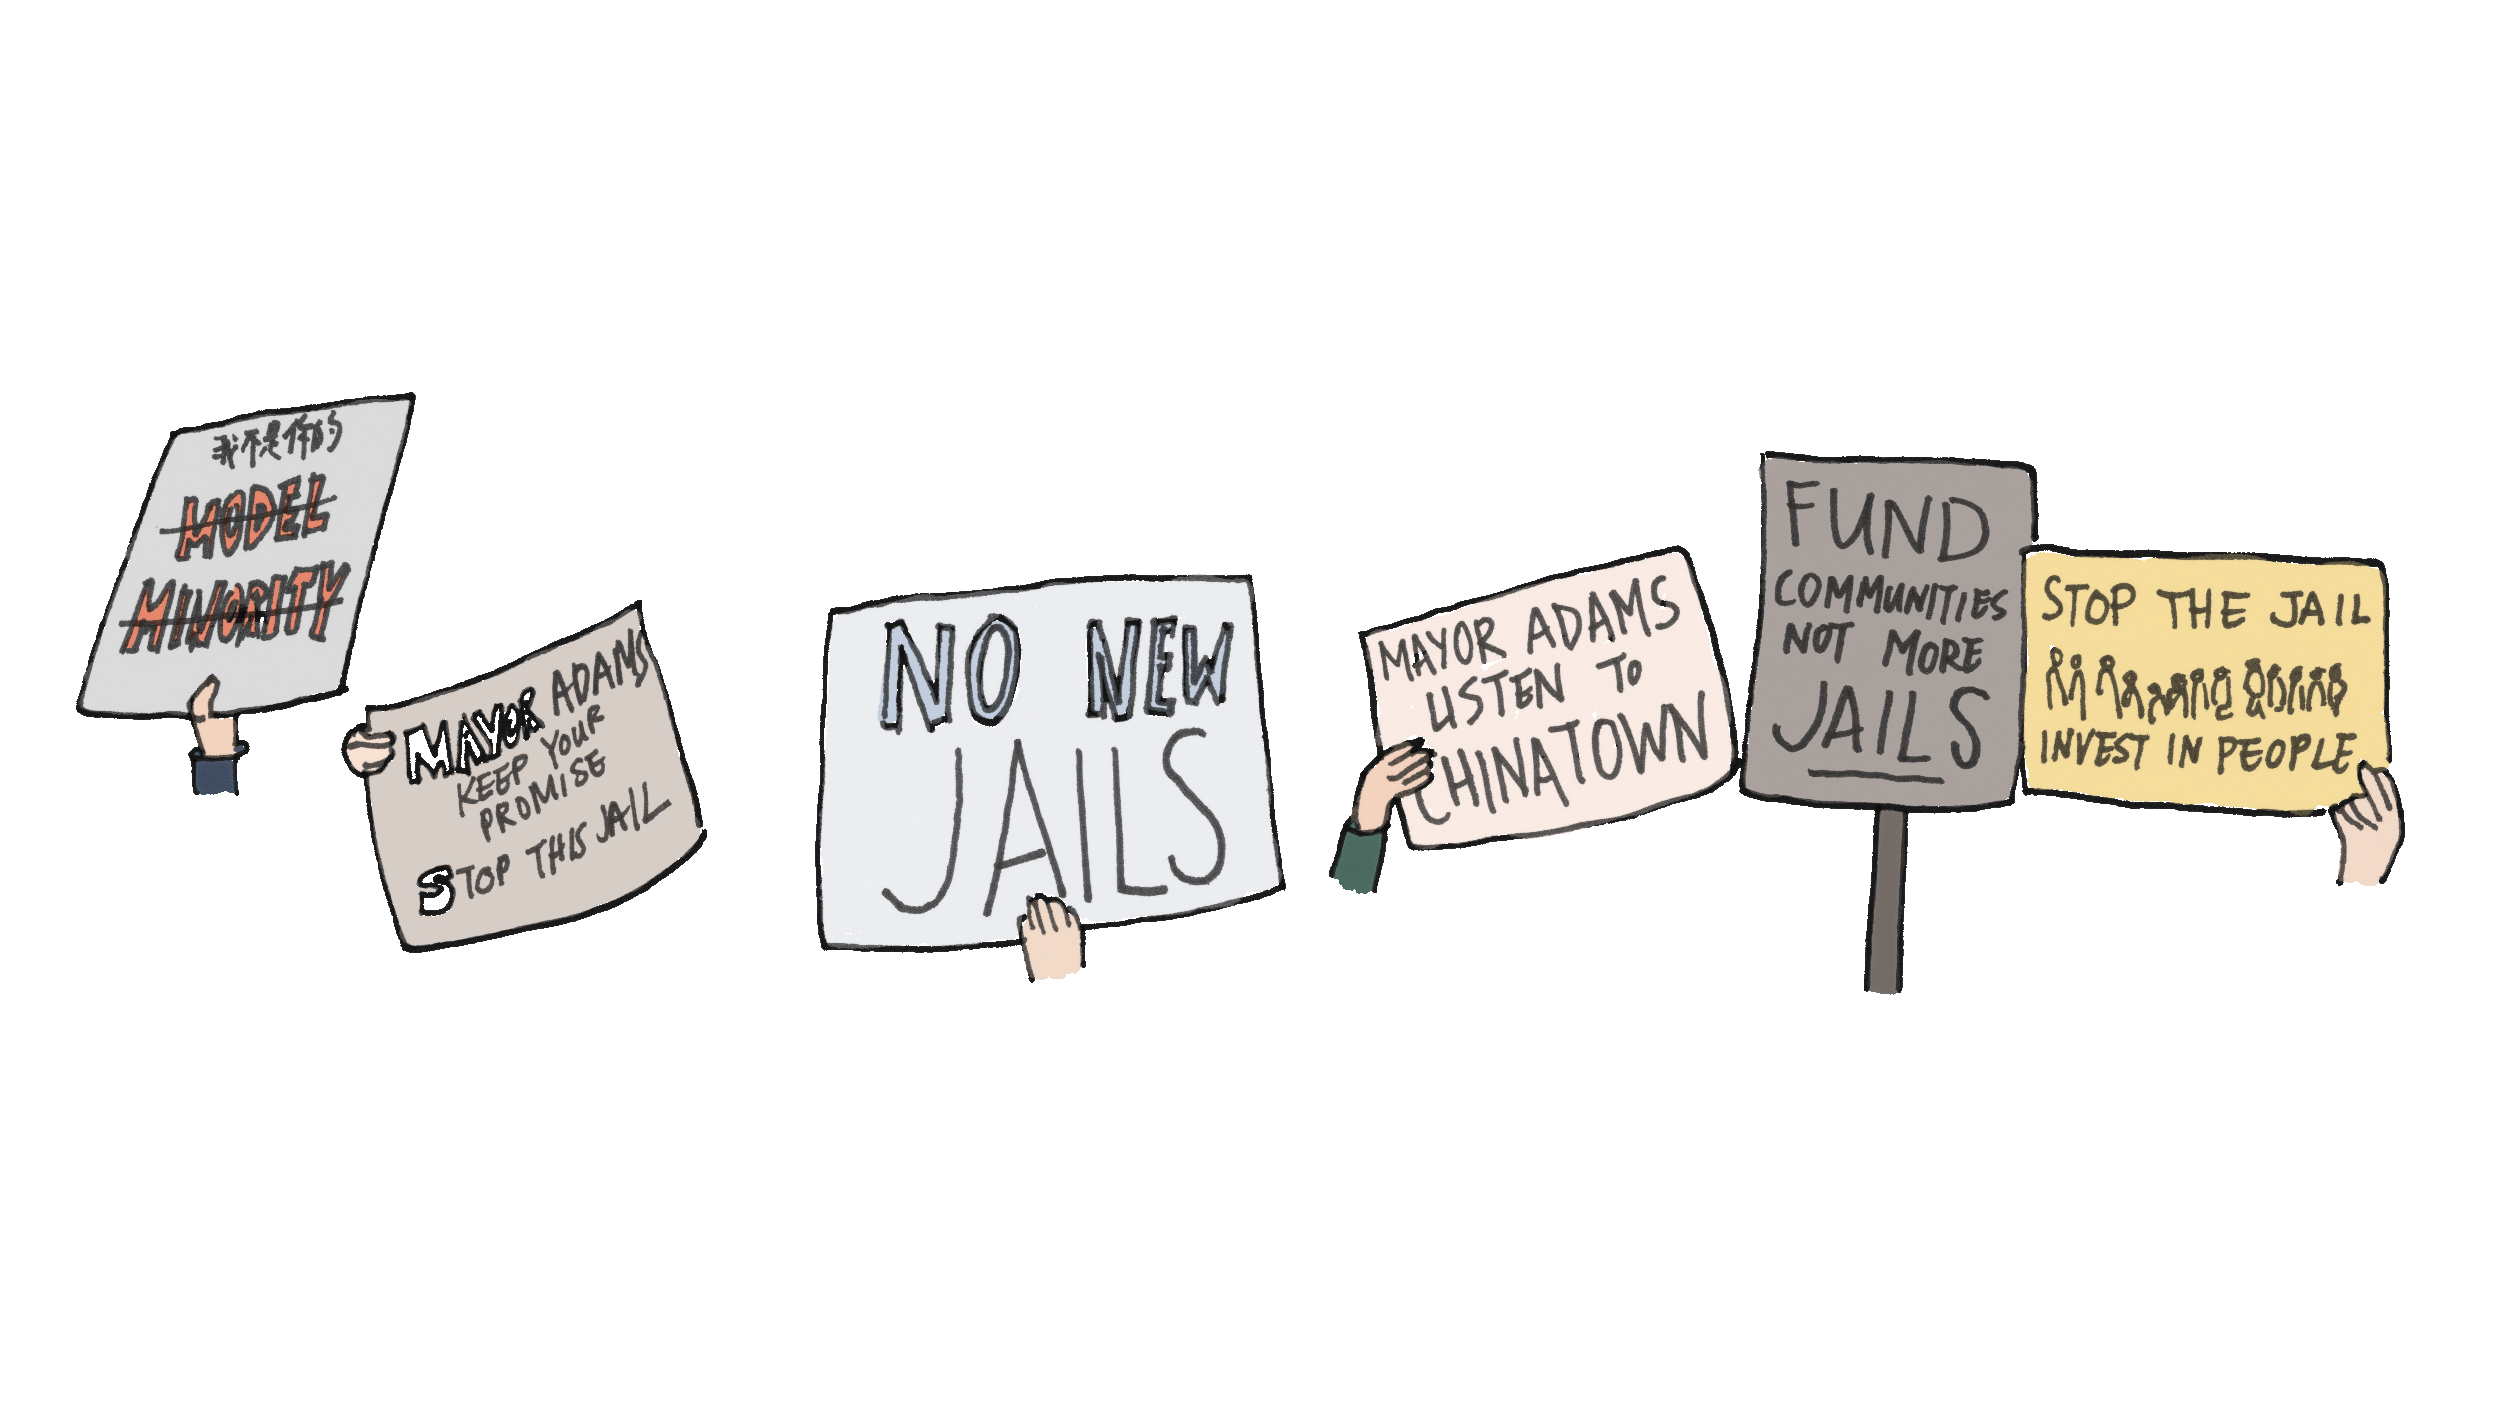 我不是你的
MODEL
MINORITY
MAYOR ADAMS
KEEP YOUR
PROMISE
STOP THIS JAIL
NO NEW
JAILS
MAYOR ADAMS
LISTEN TO
CHINATOWN
FUND
COMMUNITIES
NOT MORE
JAILS
STOP THE JAIL
INVEST IN PEOPLE